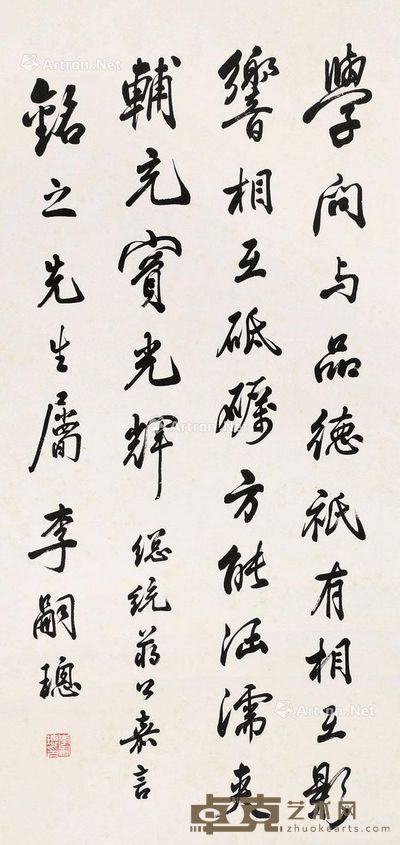 學問与品德祇有相互影
響相互砥礪方能涵濡夾
輔充實光輝 總統蔣公嘉言
銘之先生屬 李嗣璁
Artron.Net
Artron.Net
Artron.Net
Artron.Net
卓克艺术网
zhuokearts.com